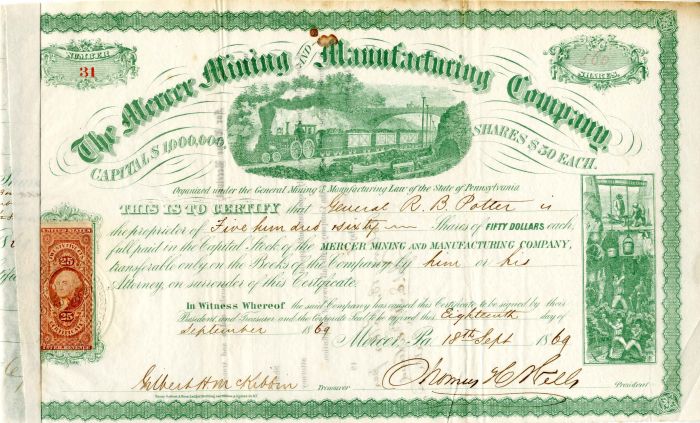 NUMBER
31
SHARES.
The Mercer Mining AND Manufacturing Company.
CAPITAL $ 1,000,000.
SHARES $ 50 EACH.
Organized under the General Mining & Manufacturing Law of the State of Pennsylvania
THIS IS TO CERTIFY that General R. B. Potter is
the proprietor of Five hundred sixty Shares of FIFTY DOLLARS each,
full paid in the Capital Stock of the MERCER MINING AND MANUFACTURING COMPANY,
transferable only on the Books of the Company by him or his
Attorney, on surrender of this Certificate.
In Witness Whereof the said Company has caused this Certificate to be signed by their
President and Treasurer and the Corporate Seal to be affixed this Eighteenth day of
September 1869 Mercer Pa. 18th Sept 1869
Gilbert H McKibbin Treasurer Thomas H Wells President
UNITED STATES
25 25
25